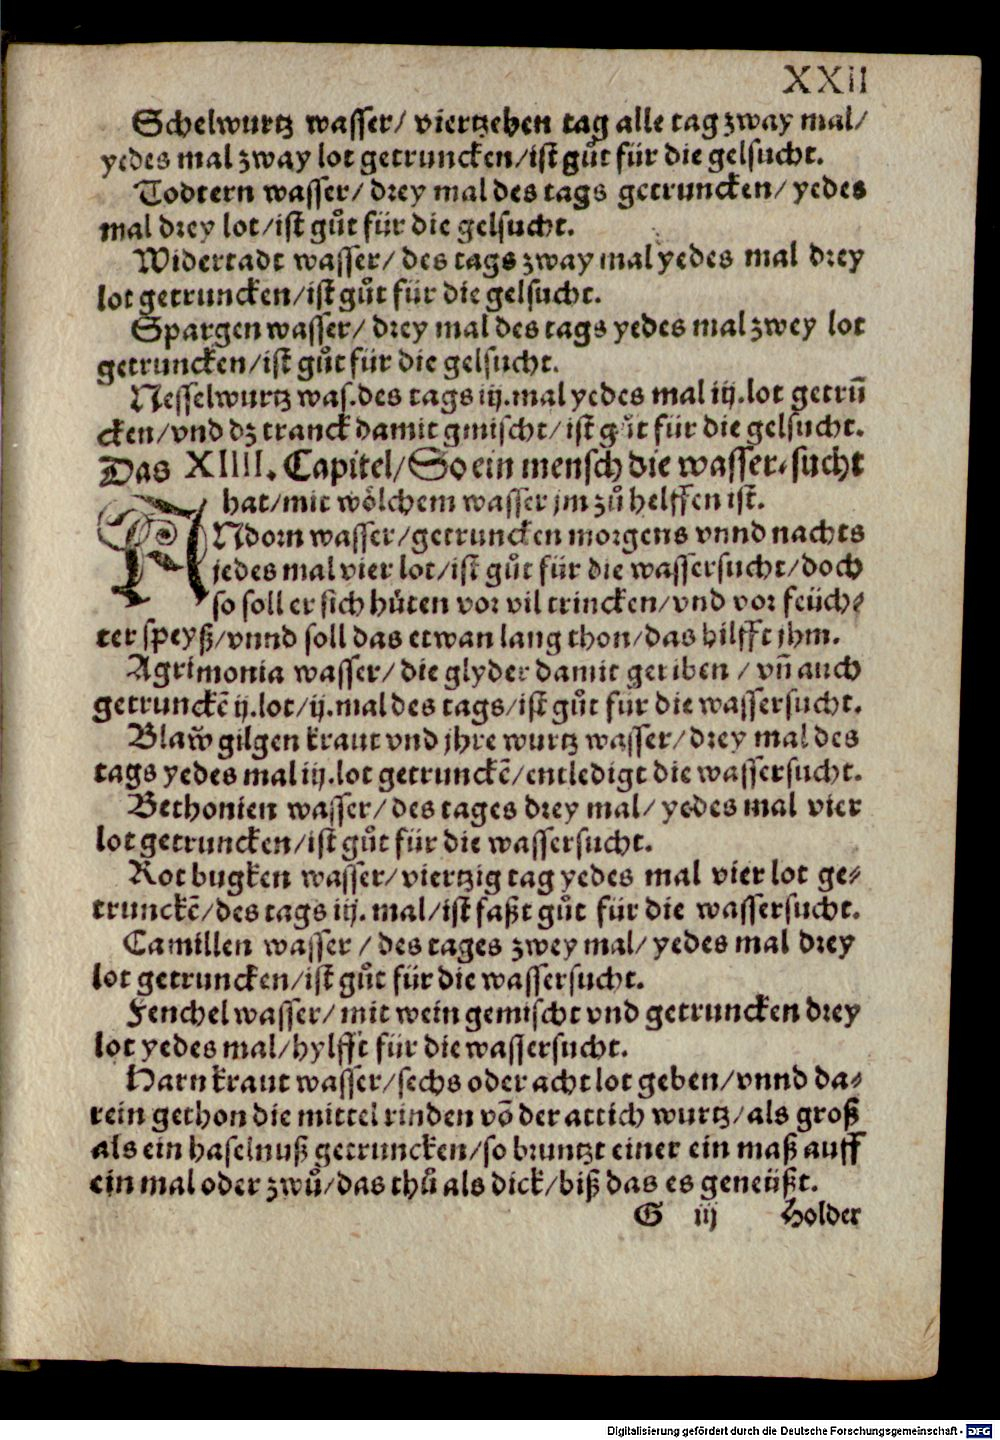 XXII
Schelwurtz wasser/ viertzehen tag alle tag zway mal/
yedes mal zway lot getruncken/ist gůt für die gelsucht.
Todtern wasser/ drey mal des tags getruncken/ yedes
mal drey lot/ist gůt für die gelsucht.
Widertadt wasser/ des tags zway mal yedes mal drey
lot getruncken/ist gůt für die gelsucht.
Spargen wasser/ drey mal des tags yedes mal zwey lot
getruncken/ist gůt für die gelsucht.
Nesselwurtz was. des tags iij. mal yedes mal iij. lot getrun̄
cken/vnd dz tranck damit gmischt/ist gůt für die gelsucht.
Das XIIII. Capitel/So ein mensch die wasser-sucht
hat/mit wölchem wasser jm zů helffen ist.
ANdorn wasser/getruncken morgens vnnd nachts
jedes mal vier lot/ist gůt für die wassersucht/doch
so soll er sich hüten vor vil trincken/vnd vor feüch-
ter speyß/vnnd soll das etwan lang thon/das hilfft jhm.
Agrimonia wasser/ die glyder damit geriben / vn̄ auch
getrunckē ij. lot/ij. mal des tags/ist gůt für die wassersucht.
Blaw̃ gilgen kraut vnd jhre wurtz wasser/ drey mal des
tags yedes mal iij. lot getrunckē/entledigt die wassersucht.
Bethonien wasser/ des tages drey mal/ yedes mal vier
lot getruncken/ist gůt für die wassersucht.
Rot bugken wasser/viertzig tag yedes mal vier lot ge-
trunckē/des tags iij. mal/ist faßt gůt für die wassersucht.
Camillen wasser / des tages zwey mal/ yedes mal drey
lot getruncken/ist gůt für die wassersucht.
Fenchel wasser/ mit wein gemischt vnd getruncken drey
lot yedes mal/hylfft für die wassersucht.
Harn kraut wasser/sechs oder acht lot geben/vnnd da-
rein gethon die mittel rinden vō der attich wurtz/als groß
als ein haselnuß getruncken/so bruntzt einer ein maß auff
ein mal oder zwů/das thů als dick/biß das es geneüßt.
G iij Holder
Digitalisierung gefördert durch die Deutsche Forschungsgemeinschaft - DFG